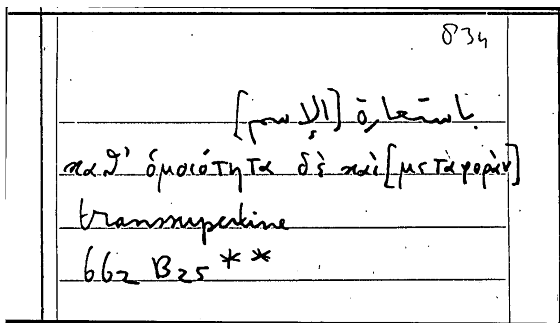 834
باستعارة [الإسم]
καθ' ὁμοιότητα δὲ καὶ [μεταφορὰν]
transsumptione
662 B25 **